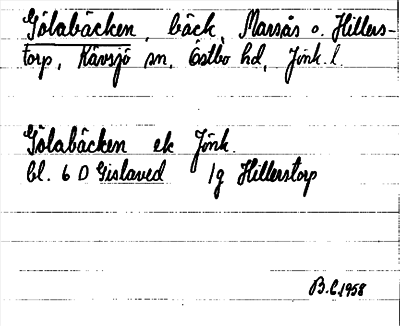 Gölabäcken, bäck, Marsås o. Hillers-
torp, Kävsjö sn, Östbo hd, Jönk. l.
Gölabäcken ek Jönk.
bl. 6 D Gislaved 1g Hillerstorp
B.C. 1958